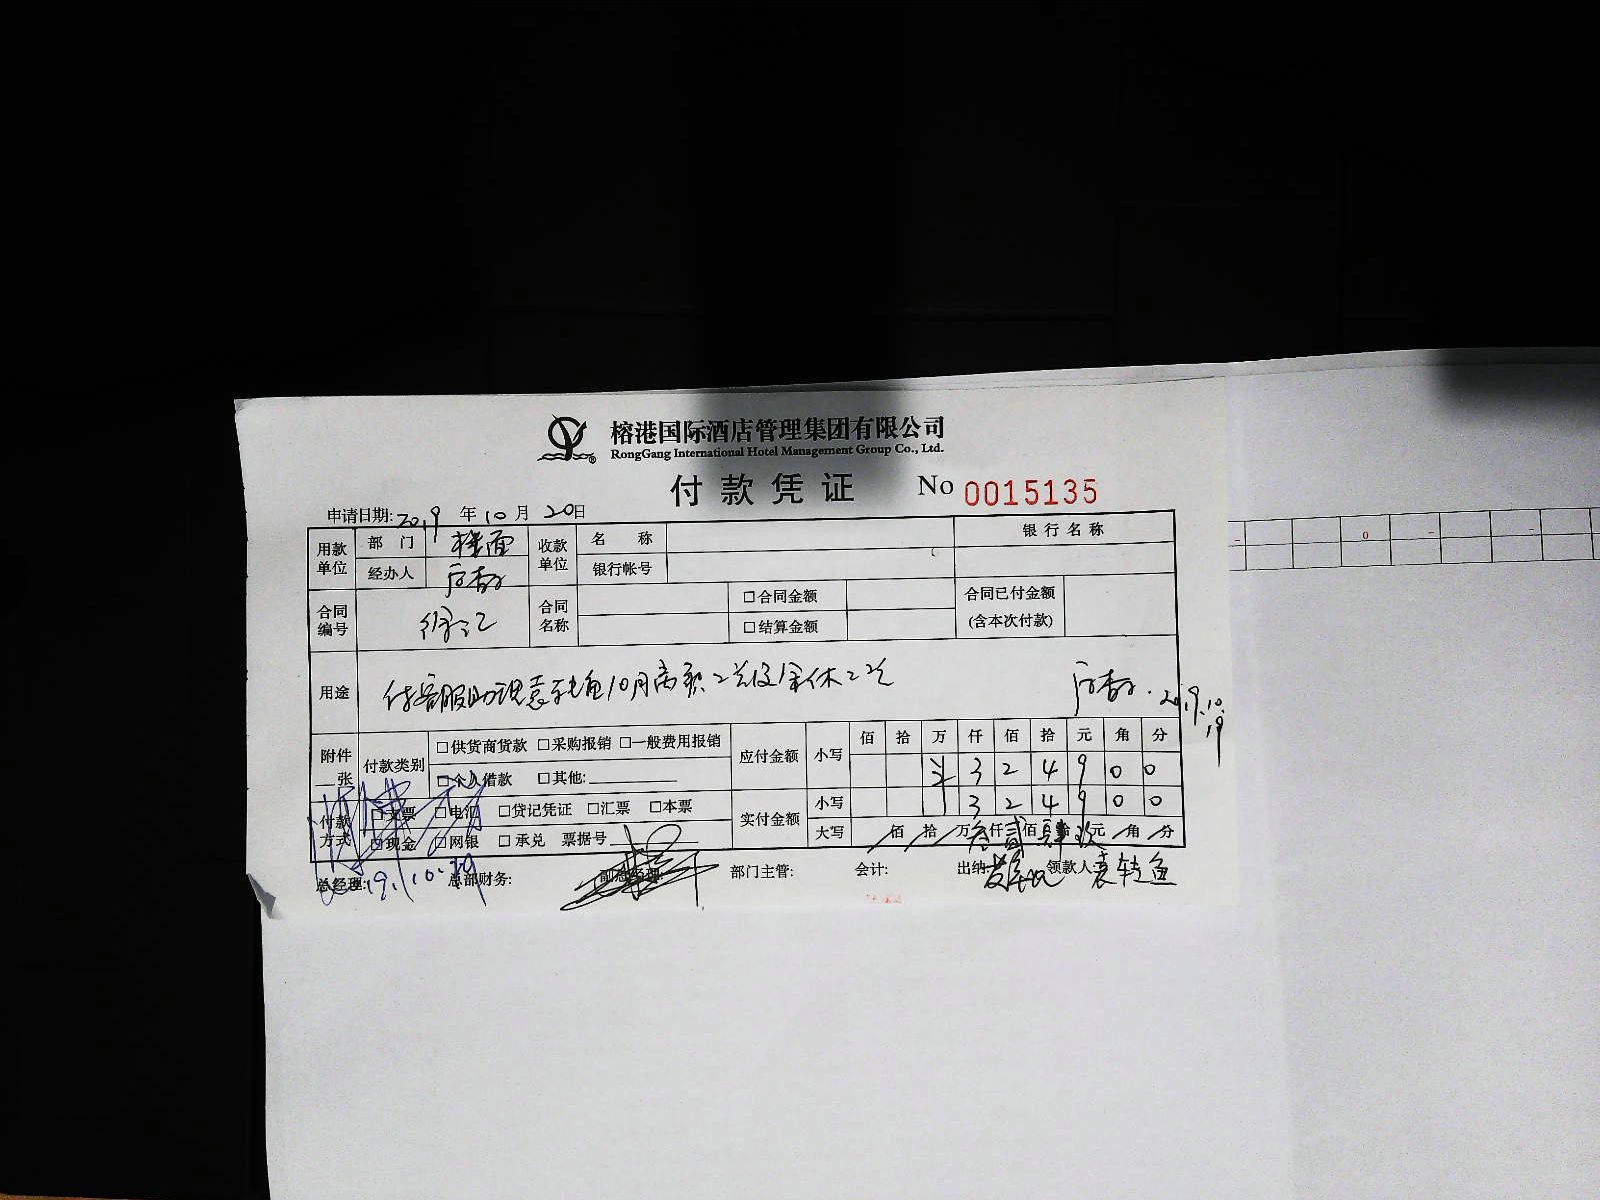 榕港国际酒店管理集团有限公司
RongGang International Hotel Management Group Co., Ltd.
付款凭证 No 0015135
申请日期: 2019 年 10 月 20 日
用款单位 部门 楼面 收款单位 名称 银行名称
经办人 银行帐号
合同编号 合同名称 □合同金额 合同已付金额(含本次付款)
□结算金额
用途 付客服助理袁转鱼10月离职工资及年休工资 2019.10.19
附件 张 付款类别 □供货商货款 □采购报销 □一般费用报销 应付金额 小写 佰 拾 万 仟 佰 拾 元 角 分
□个人借款 □其他: ¥ 3 2 4 9 0 0
付款方式 □支票 □电汇 □贷记凭证 □汇票 □本票 实付金额 小写 3 2 4 9 0 0
□现金 □网银 □承兑 票据号 大写 佰 拾 万 叁 仟 贰 佰 肆 拾 玖 元 角 分
总经理: 19.10.20 总部财务: 副总经理: 部门主管: 会计: 出纳: 领款人: 袁转鱼